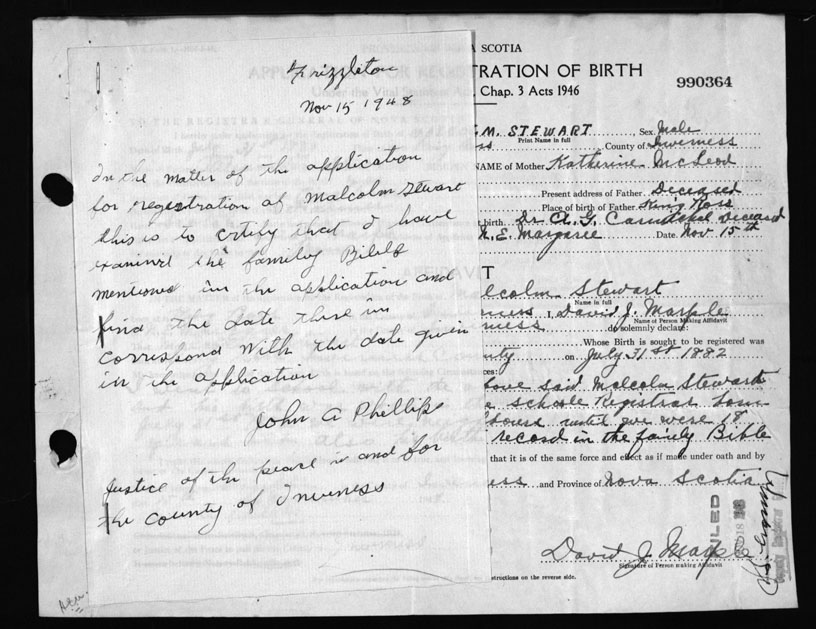 Frizzleton
Nov 15 1948
In the matter of the application
for registration of Malcolm Stewart
this is to certify that I have
examined the family Bible
mentioned in the application and
find the date there in
correspond with the date given
in the application
John A Phillips
Justice of the peace in and for
the county of Inverness
A SCOTIA
TRATION OF BIRTH
990364
Chap. 3 Acts 1946
M. STEWART Sex Male
Print Name in full
ss County of Inverness
NAME of Mother Katherine McLeod
Present address of Father Deceased
Place of birth of Father King Ross
birth. Dr. A. G. Deceased
N. E. Margaree Date. Nov 15th
T
lcolm Stewart
Name in full
rness I, David J. Marple
Name of Person Making Affidavit
ness do solemnly declare:
Whose Birth is sought to be registered was
nty on July 31st 1882
ces:
bove said Malcolm Stewart
schoole Registrar
until we were 18
record in the family Bible
that it is of the same force and effect as if made under oath and by
ess and Province of Nova Scotia
FILED
David J. Marple
Signature of Person making Affidavit
structions on the reverse side.